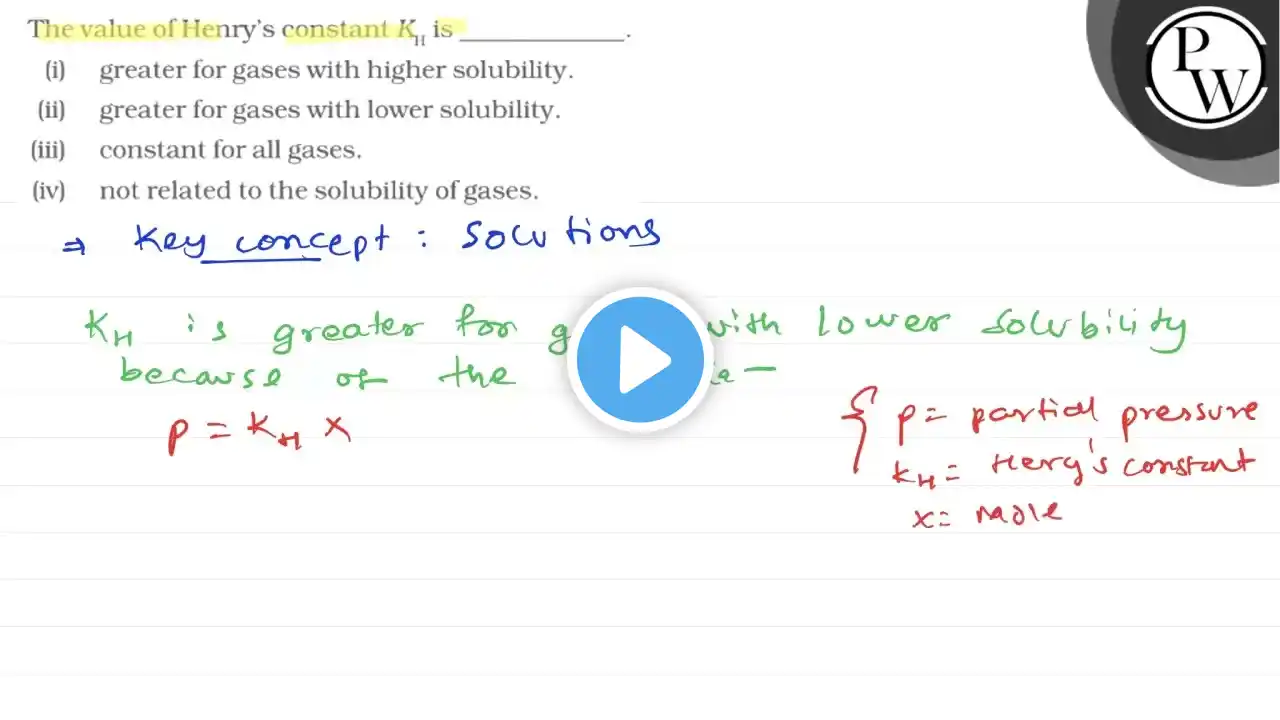 The value of Henry's constant K_H is ____________.
(i) greater for gases with higher solubility.
(ii) greater for gases with lower solubility.
(iii) constant for all gases.
(iv) not related to the solubility of gases.
P
W
⇒ Key concept : Solutions
K_H is greater for g with lower solubility
because of the
p = K_H x
p = partial pressure
K_H = Hery's constant
x = mole